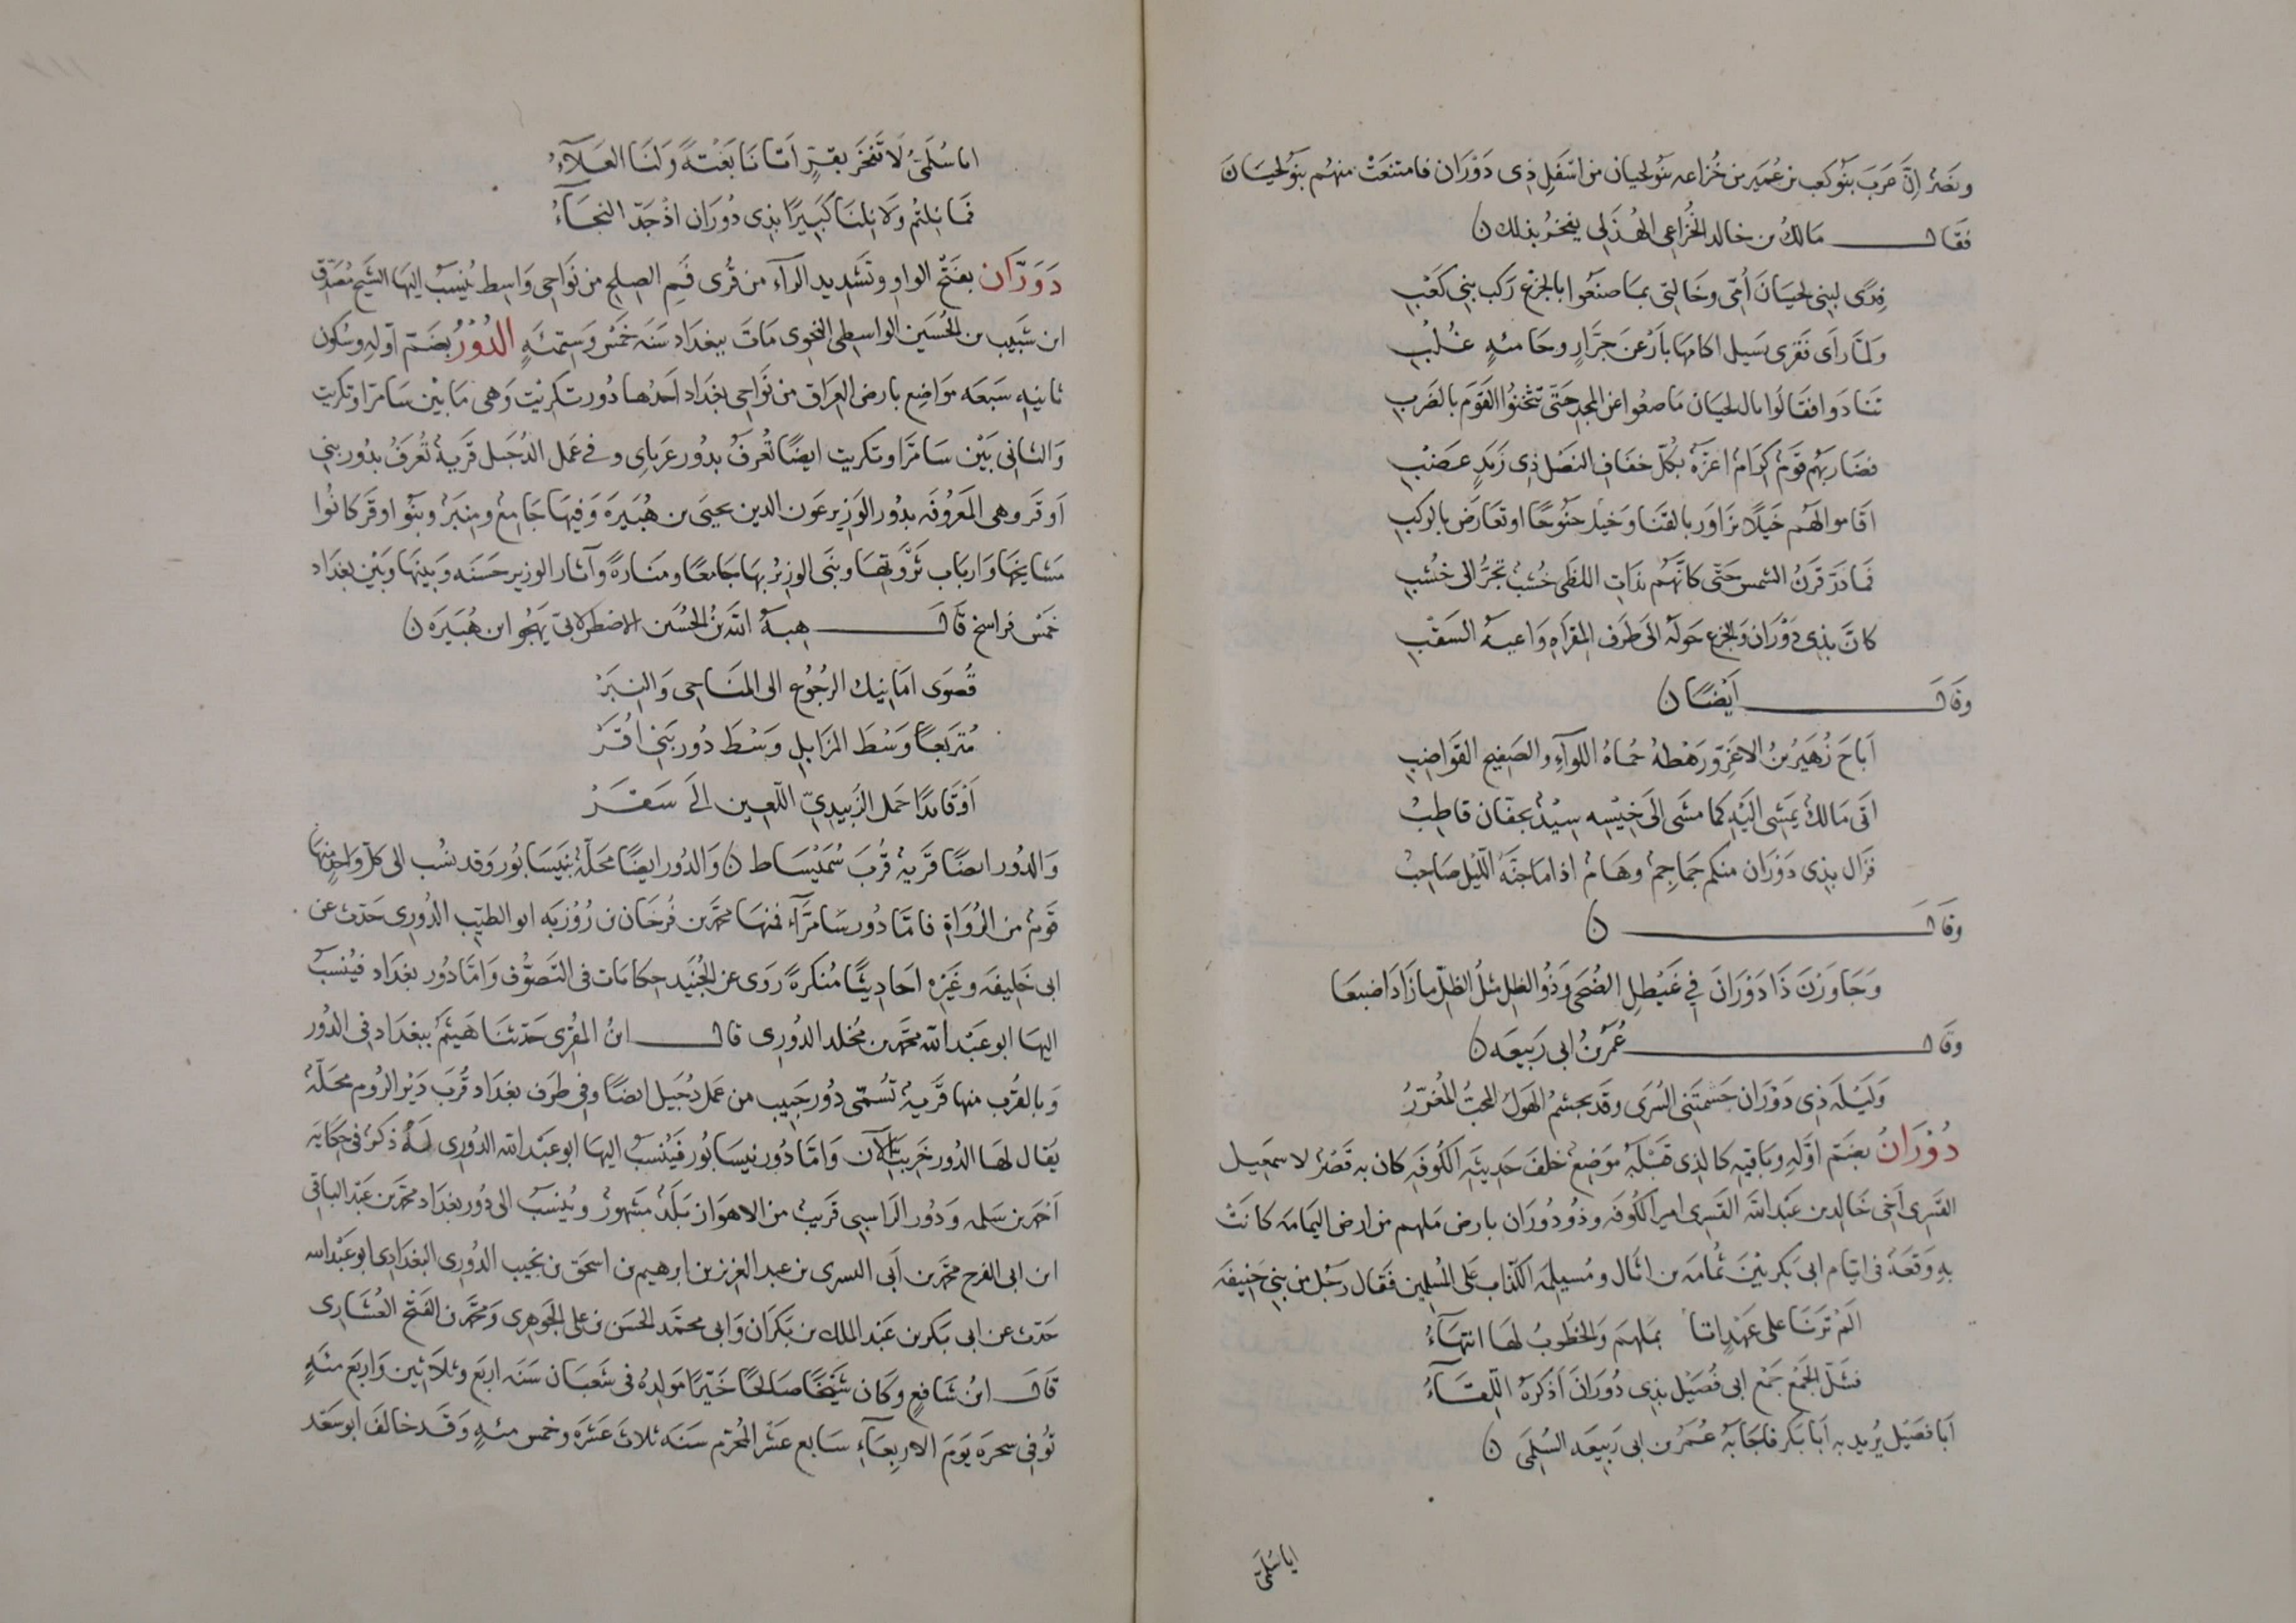 ونصر ان حرب بنو كعب بن عمير من خزاعه بنو لحيان من اسفل ذى دَوْرَان فامتنعت منهم بنو لحيان
فقال مالك بن خالد الخُزاعى الهُذلى يفخر بذلك ن
فِدًى لبنى لحيَانَ أُمّى وخَالتى بمَا صنَعُوا بالجزع رَكب بنى كَعْبِ
وَلمّا رأى نَقرى تسيل اكامها باَرْعَنَ جَرَّارٍ وحامئهٍ غُلْبِ
تنادَوا فقالوا يال لحيان ماصعوا عن المجد حَتّى تثخنُوا القوم بالضربِ
فضَارَبَهم قومٌ كرامٌ اعزّة بكلّ خفَاف النصل ذى رَبَدٍ عَضْبِ
اقاموا لهُم خيلًا تزَاوَر بالقنا وخيل جنُوحًا اوتعَارض بالركبِ
فما ذرّ قَرنُ الشمس حَتّى كانّهُم بذَات اللظى خُشبٌ تجرّ الى خُشْبِ
كانَّ بذى دَوْرَان والجزع حَولَهُ الى طَرَف المقرَاه راعيه السَقْبِ
وقال أيضًا ن
أبَاحَ زُهَيرُ بنُ الاغرّ ورَهْطهُ حُماهُ اللوآء والصفيح القواضبِ
اتى مَالك يمشى اليه كما مشَى الى خِيْسه سِيْدٌ بخفّان قاطِبُ
فزال بذى دَوْرَان منكم جمَاجمٌ وهَامٌ اذا ما جنّهُ اللّيل صَاحبُ
وقال ن
وجَاوَزنَ ذَا دَوْرَانَ فى غيْطلِ الضُحى وَذُوالظل مثلُ الظلّ مازَادَ اصْبعَا
وقال عُمَر بنُ ابى رَبيعَه ن
وَلَيْلَه ذى دَوْرَان جَشمَتْنى السُرَى وقد يجشمُ الهَولَ المحبُّ المُغرّرُ
دُوْرَانُ بضمّ اوّله وباقيه كالذى قبْلهُ موضعٌ خلفَ حَديثَه الكُوفَه كان به قَصْرٌ لاسمعيل
القسرى اخى خَالد بن عَبْد الله القسرى امير الكُوفَه وذُو دُورَان بارض مَلهم من ارض اليمامه كانتْ
بهِ وَقعَهٌ فى ايّام ابى بكر بَيْن ثُمامَه بن اثال ومُسيلمَه الكذّاب على المُسلمين فقال رَجُل من بنى حَنيفَه
المْ تَرنَا على عَهْدٍ اتانا بملهمَ والخطُوبُ لها انتهَآءُ
فشلّ الجَمْع جَمْع ابى فُصَيْل بذى دُورَانَ اَذْكرَهُ اللّقآءُ
أبا فصَيْل يُريد به أبا بكر فاجَابَهُ عُمَرُ بن ابى رَبيعَه السُلمى ن
ايا سُلمى
اما سُلمىُّ لا تَفخَر بقرٍّ اتانا بَغْتَةً ولَنَا العَلآءُ
فمَا نلتُم ولا نلنا كَبيرًا بذى دُورَان اذْ جَدّ النجَآءُ
دَوَرَّان بفتح الواو وتشديد الرآء من قُرى فَم الصِلح من نَواحى وَاسِط يُنسَبُ اليها الشيخ مُصَدّق
ابن شَبيب بن الحُسَين الواسِطى النحوى مَاتَ ببغدَاد سَنَه خمْس وَستمئهٍ الدُوْرُ بضمّ اوّلهِ وسُكون
ثانيهِ سَبعَه موَاضع بارض العِرَاق من نَوَاحى بغدَاد احدُها دُور تكريْت وَهى مَا بَيْن سَامَرّا وتكريت
وَالثانى بَيْن سَامَرّا وتكريت ايضًا تُعرفُ بدُور عَرَباىِ وفى عَمل الدُجَيل قَريهٌ تُعرَفُ بدُور بنى
اوقَر وهى المعرُوفه بدُور الوَزير عَون الدين يحيَى بن هُبَيرَه وفيهَا جَامعٌ ومِنبَرٌ وبَنُو اوقر كانُوا
مَشايخها وَارباب ثَرْوَتها وبنَى الوزيرُ بهَا جامعًا ومنارةً وآثار الوزير حَسَنَه وبينها وبَيْن بغدَاد
خمسُ فراسخ قال هبهُ الله بنُ الحُسَين الاصطرلابى يَهجُو ابن هُبَيرَه ن
قُصوَى امَانيك الرجُوع الى المسَاحى والنيرْ
مُتربعاً وَسْطَ المزَابلِ وَسْطَ دُور بَنى اقَرْ
اَوْقَائدًا جمَل الزَبيدىّ اللّعين الى سَقَرْ
والدُور ايضًا قَريهٌ قُربَ سُمَيْسَاط ن والدُور ايضًا محَلّهٌ بنيسَابُور وقد نسُب الى كلّ واحدٍ منها
قومٌ من الرُوَاة فامّا دُور سَامَرّآء فمنهَا محمّد بن فرخَان بن رُوْزبَه ابو الطيّب الدُورى حَدّث عن
ابى خَليفَه وغَيْره احَاديثًا مُنكرَهً رَوى عن الجُنَيد حكايات فى التصَوُّف وامّا دُور بغدَاد فيُنسَبُ
اليهَا ابو عَبْد الله محمّد بن مُخلد الدُورى قال ابنُ المُقرى حَدّثنَا هَيثمُ ببغدَاد فى الدُور
وبالقُرب منها قَريهٌ تُسمّى دُور حَبيب من عَمل دُجَيل ايضًا وفى طرَف بغدَاد قُربَ دَيْر الرُوم محَلّهٌ
يقال لهَا الدُور خَربَت الآن وَامّا دُور نيسَابُور فيُنسَبُ اليها ابو عَبْد الله الدُورى لهُ ذكرٌ فى حكايَه
احمَد بن سَلمه ودُور الرَاسِبى قَريبٌ من الاهواز بَلَدٌ مَشهورٌ ويُنسَبُ الى دُور بغدَاد محمّد بن عَبْد الباقى
ابن ابى الفرح محمّد بن أبى اليسرى بن عبد العزيز بن ابرهيم بن اسحق بن نجيب الدُورى البغدَادى ابو عَبْد الله
حَدّث عن ابى بكر بن عَبْد الملك بن بَكرَان وَابى محمّد الحسَن بن على الجَوهرى ومحمّد بن الفتْح العُشَارى
قال ابنُ شَافع وكان شَيْخًا صَالحًا خَيّرًا مَولِدُهُ فى شعبَان سَنَه اربَع وثلاَثين وَاربَع مئهٍ
تُوفى سحرَه يَومَ الاربعَآء سَابع عَشْر المُحرّم سَنَه ثلاث عَشَرَه وخمس مئهٍ وقَد خالفَ ابو سَعْد